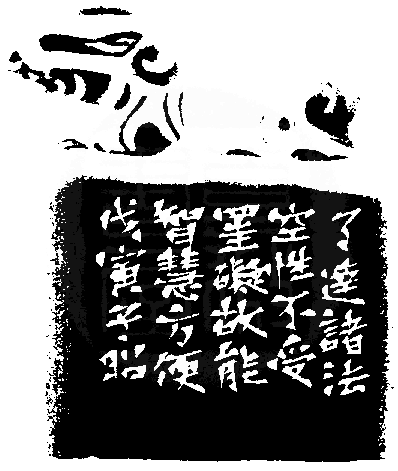 了達諸法
空性不受
罣礙故能
智慧方便
戊寅 昭